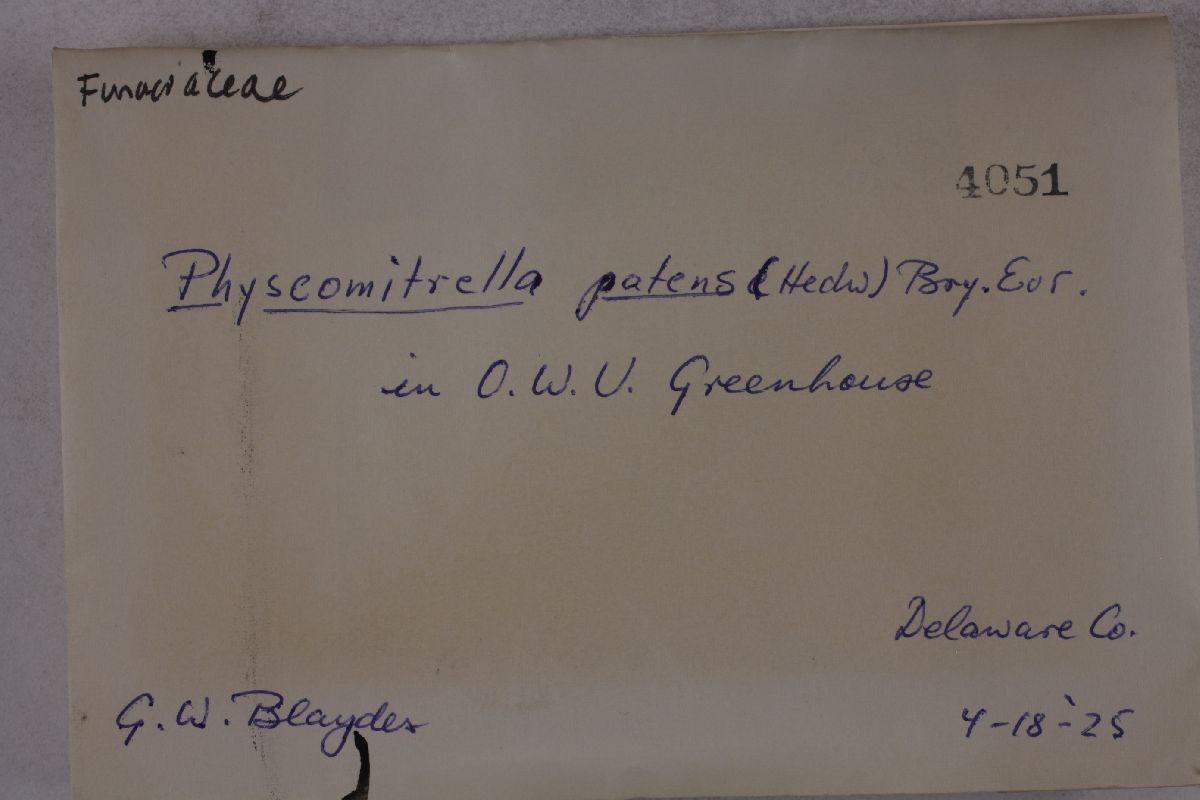 Funariaceae
4051
Physcomitrella patens (Hedw) Bry. Eur.
in O. W. U. Greenhouse
Delaware Co.
G. W. Blaydes
4-18-25